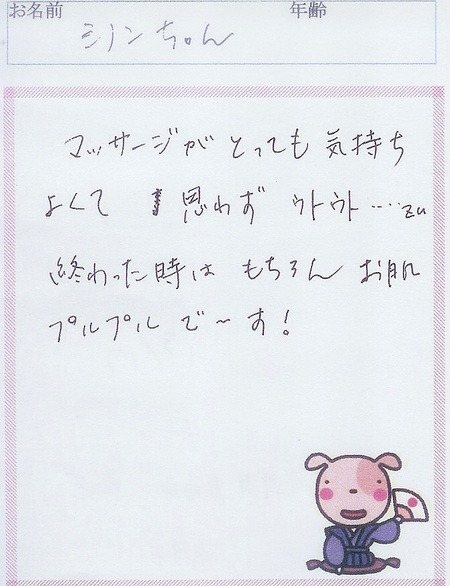 お名前 年齢
シノンちゃん
マッサージがとっても気持ち
よくて 思わず ウトウト……zu
終わった時は もちろん お肌
プルプル で〜す!